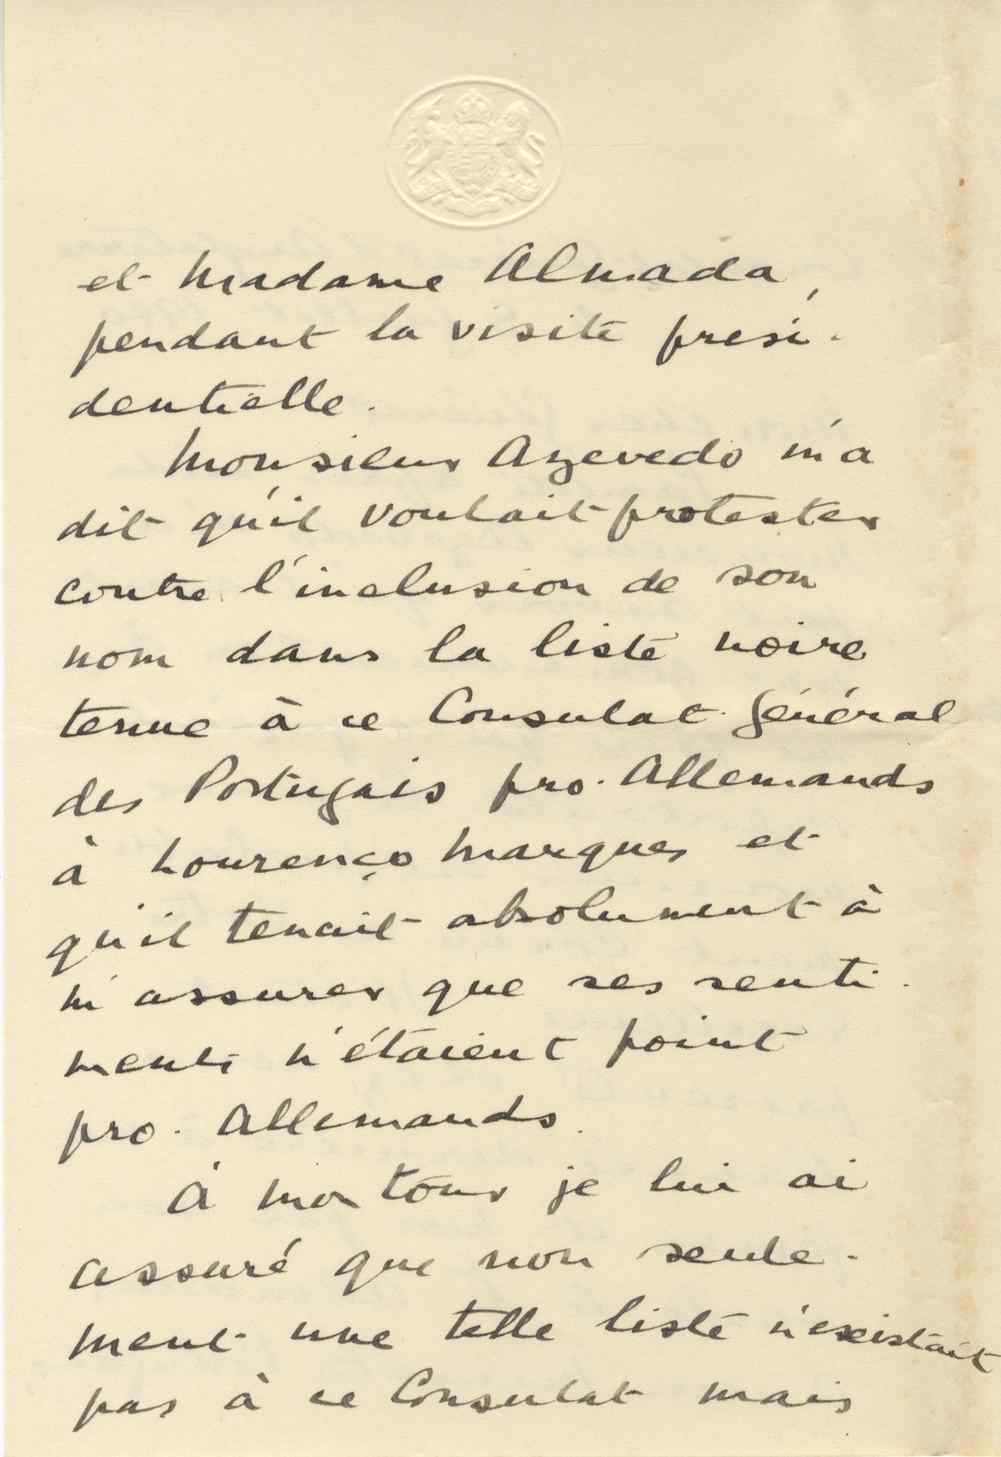 et Madame Almada,
pendant la visite prési-
dentielle.
Monsieur Azevedo m'a
dit qu'il voulait protester
contre l'inclusion de son
nom dans la liste noire
tenue à ce Consulat Général
des Portugais pro-Allemands
à Lourenço Marques et
qu'il tenait absolument à
m'assurer que ses senti-
ments n'étaient point
pro-Allemands.
À mon tour je lui ai
assuré que non seule-
ment une telle liste n'existait
pas à ce Consulat mais